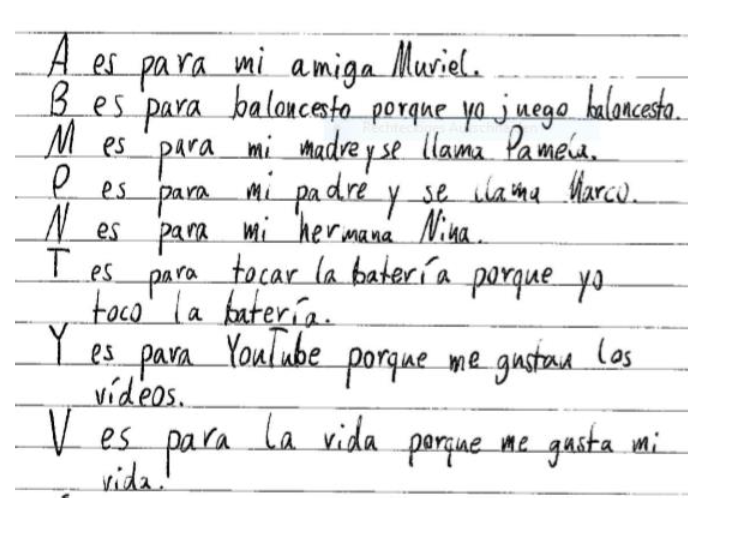 A es para mi amiga Muriel.
B es para baloncesto porque yo juego baloncesto.
M es para mi madre y se llama Pamela.
P es para mi padre y se llama Marco.
N es para mi hermana Nina.
T es para tocar la batería porque yo
toco la batería.
Y es para YouTube porque me gustan los
vídeos.
V es para la vida porque me gusta mi
vida.